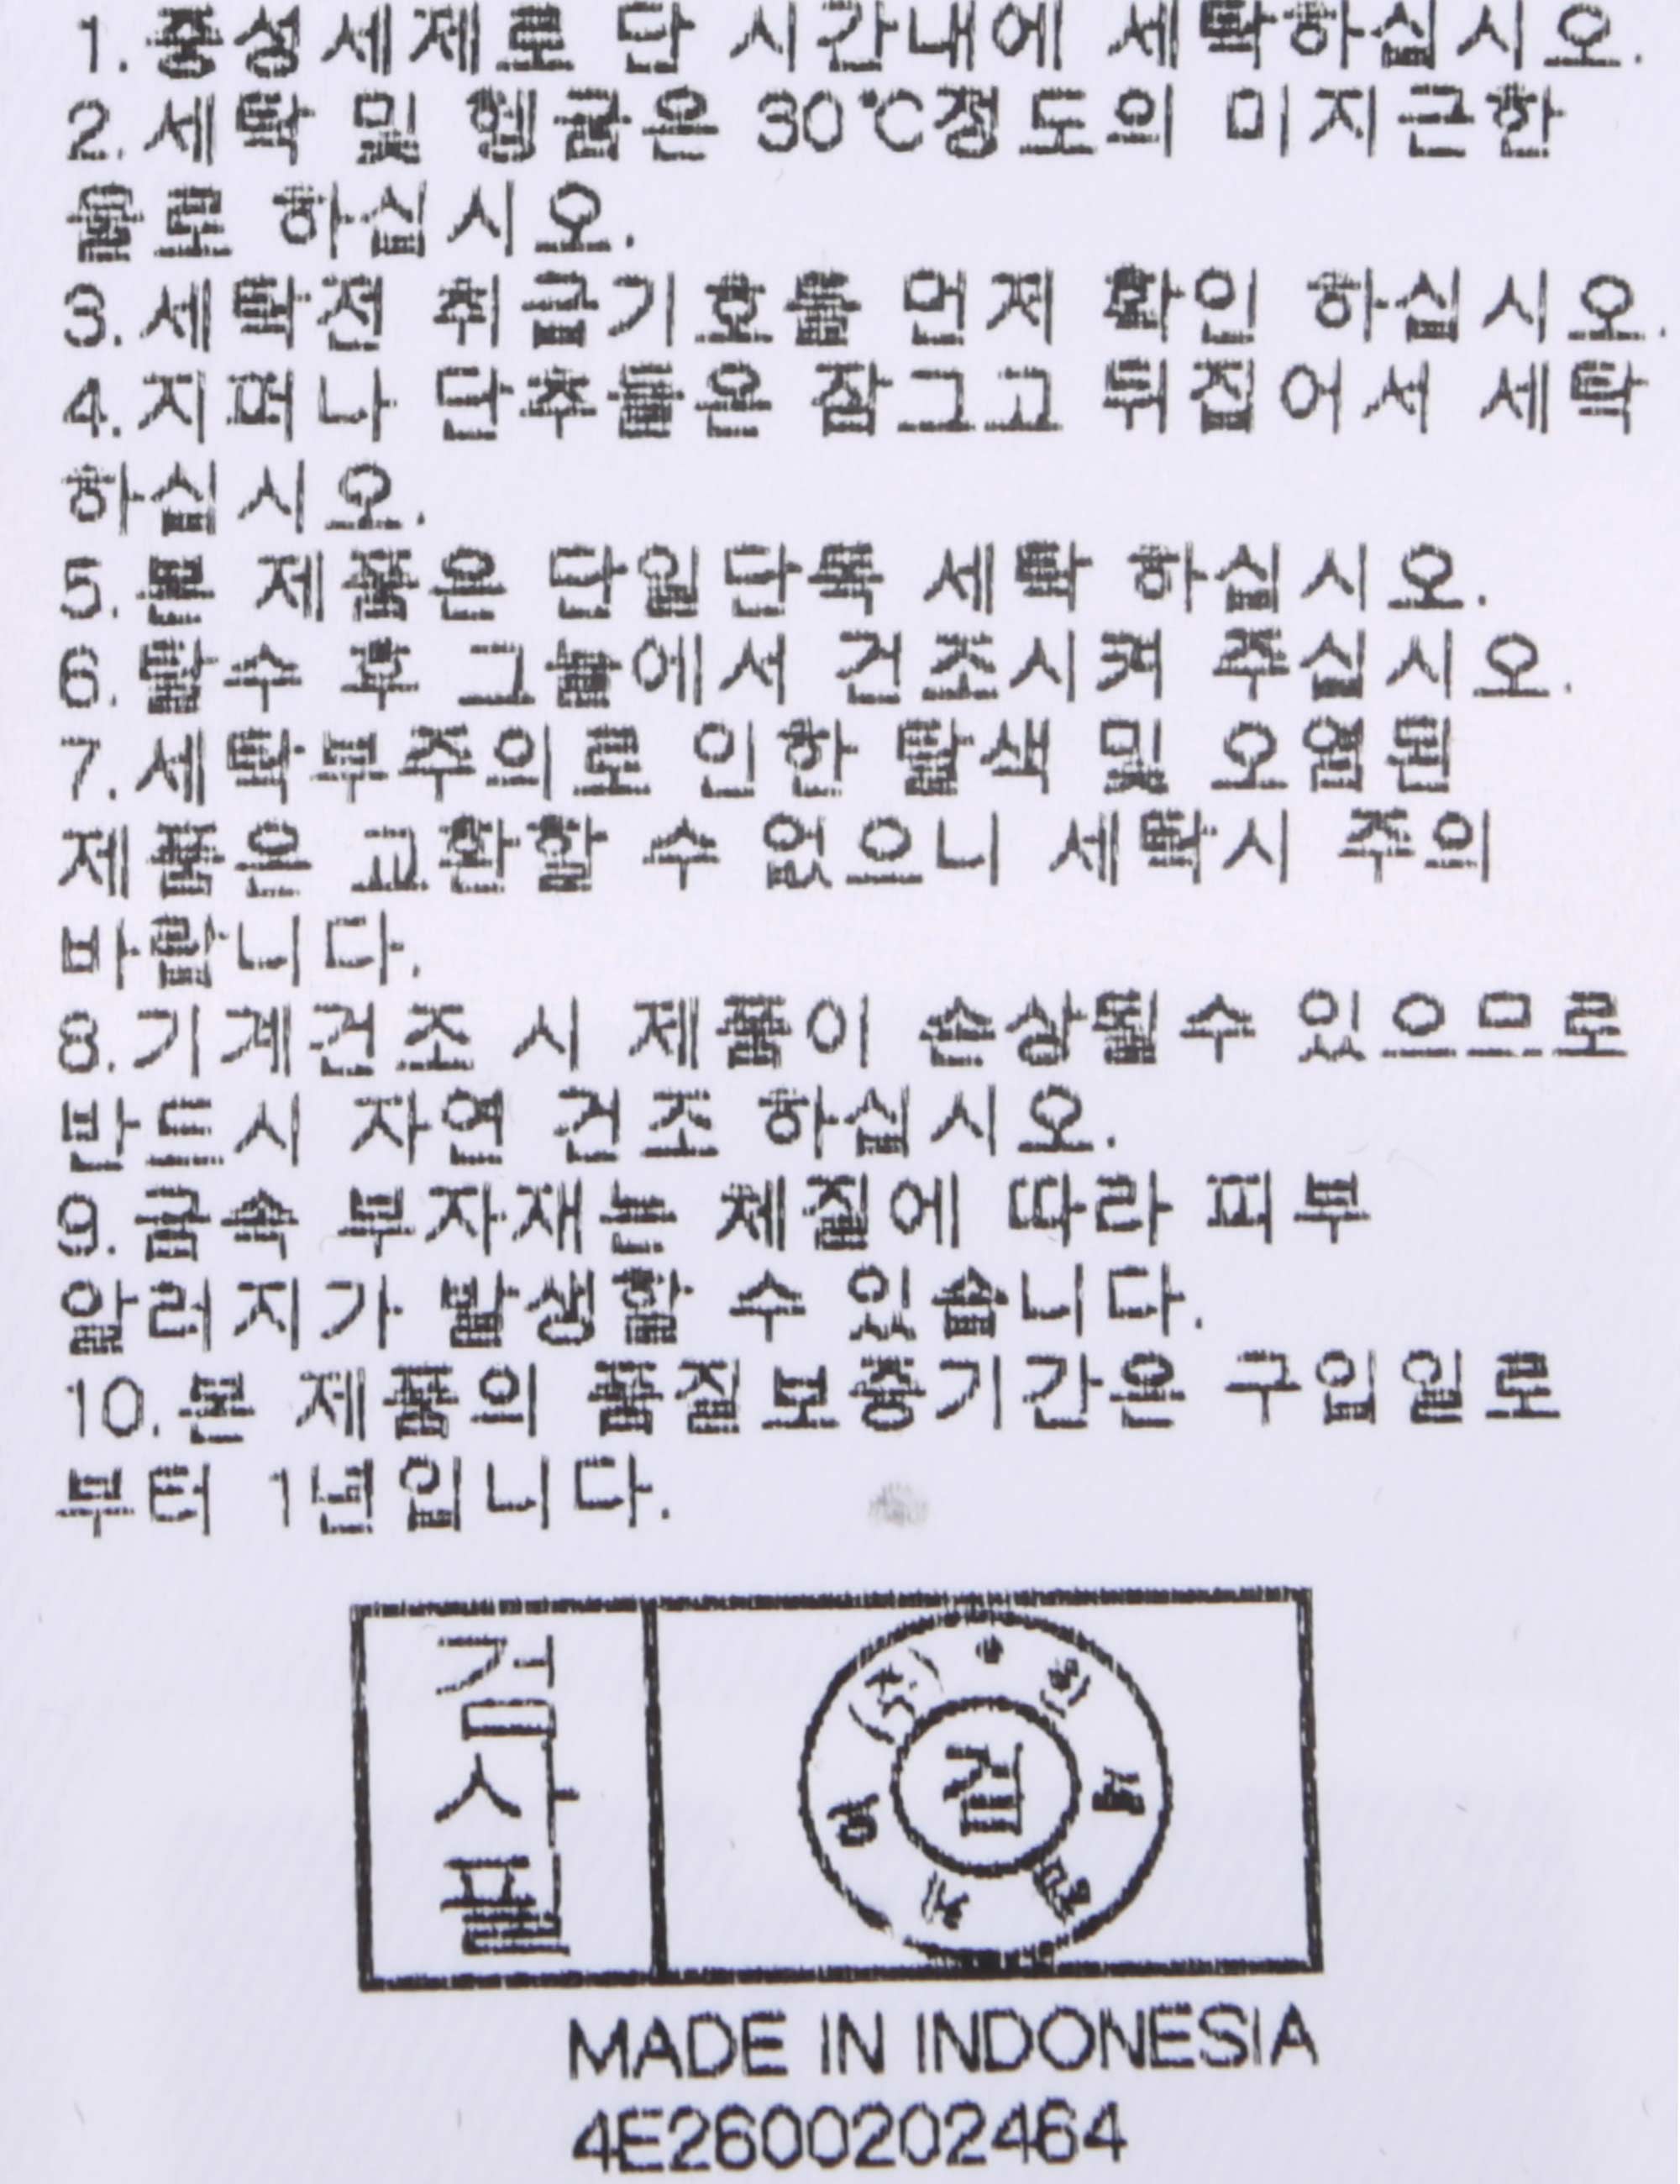 1.중성세제로 단 시간내에 세탁하십시오.
2.세탁 및 헹굼은 30℃정도의 미지근한
물로 하십시오.
3.세탁전 취급기호를 먼저 확인 하십시오.
4.지퍼나 단추들은 잠그고 뒤집어서 세탁
하십시오.
5.본 제품은 단일단독 세탁 하십시오.
6.탈수 후 그늘에서 건조시켜 주십시오.
7.세탁부주의로 인한 탈색 및 오염된
제품은 교환할 수 없으니 세탁시 주의
바랍니다.
8.기계건조 시 제품이 손상될수 있으므로
반드시 자연 건조 하십시오.
9.금속 부자재는 체질에 따라 피부
알러지가 발생할 수 있습니다.
10.본 제품의 품질보증기간은 구입일로
부터 1년입니다.
검사필
검
MADE IN INDONESIA
4E2600202464